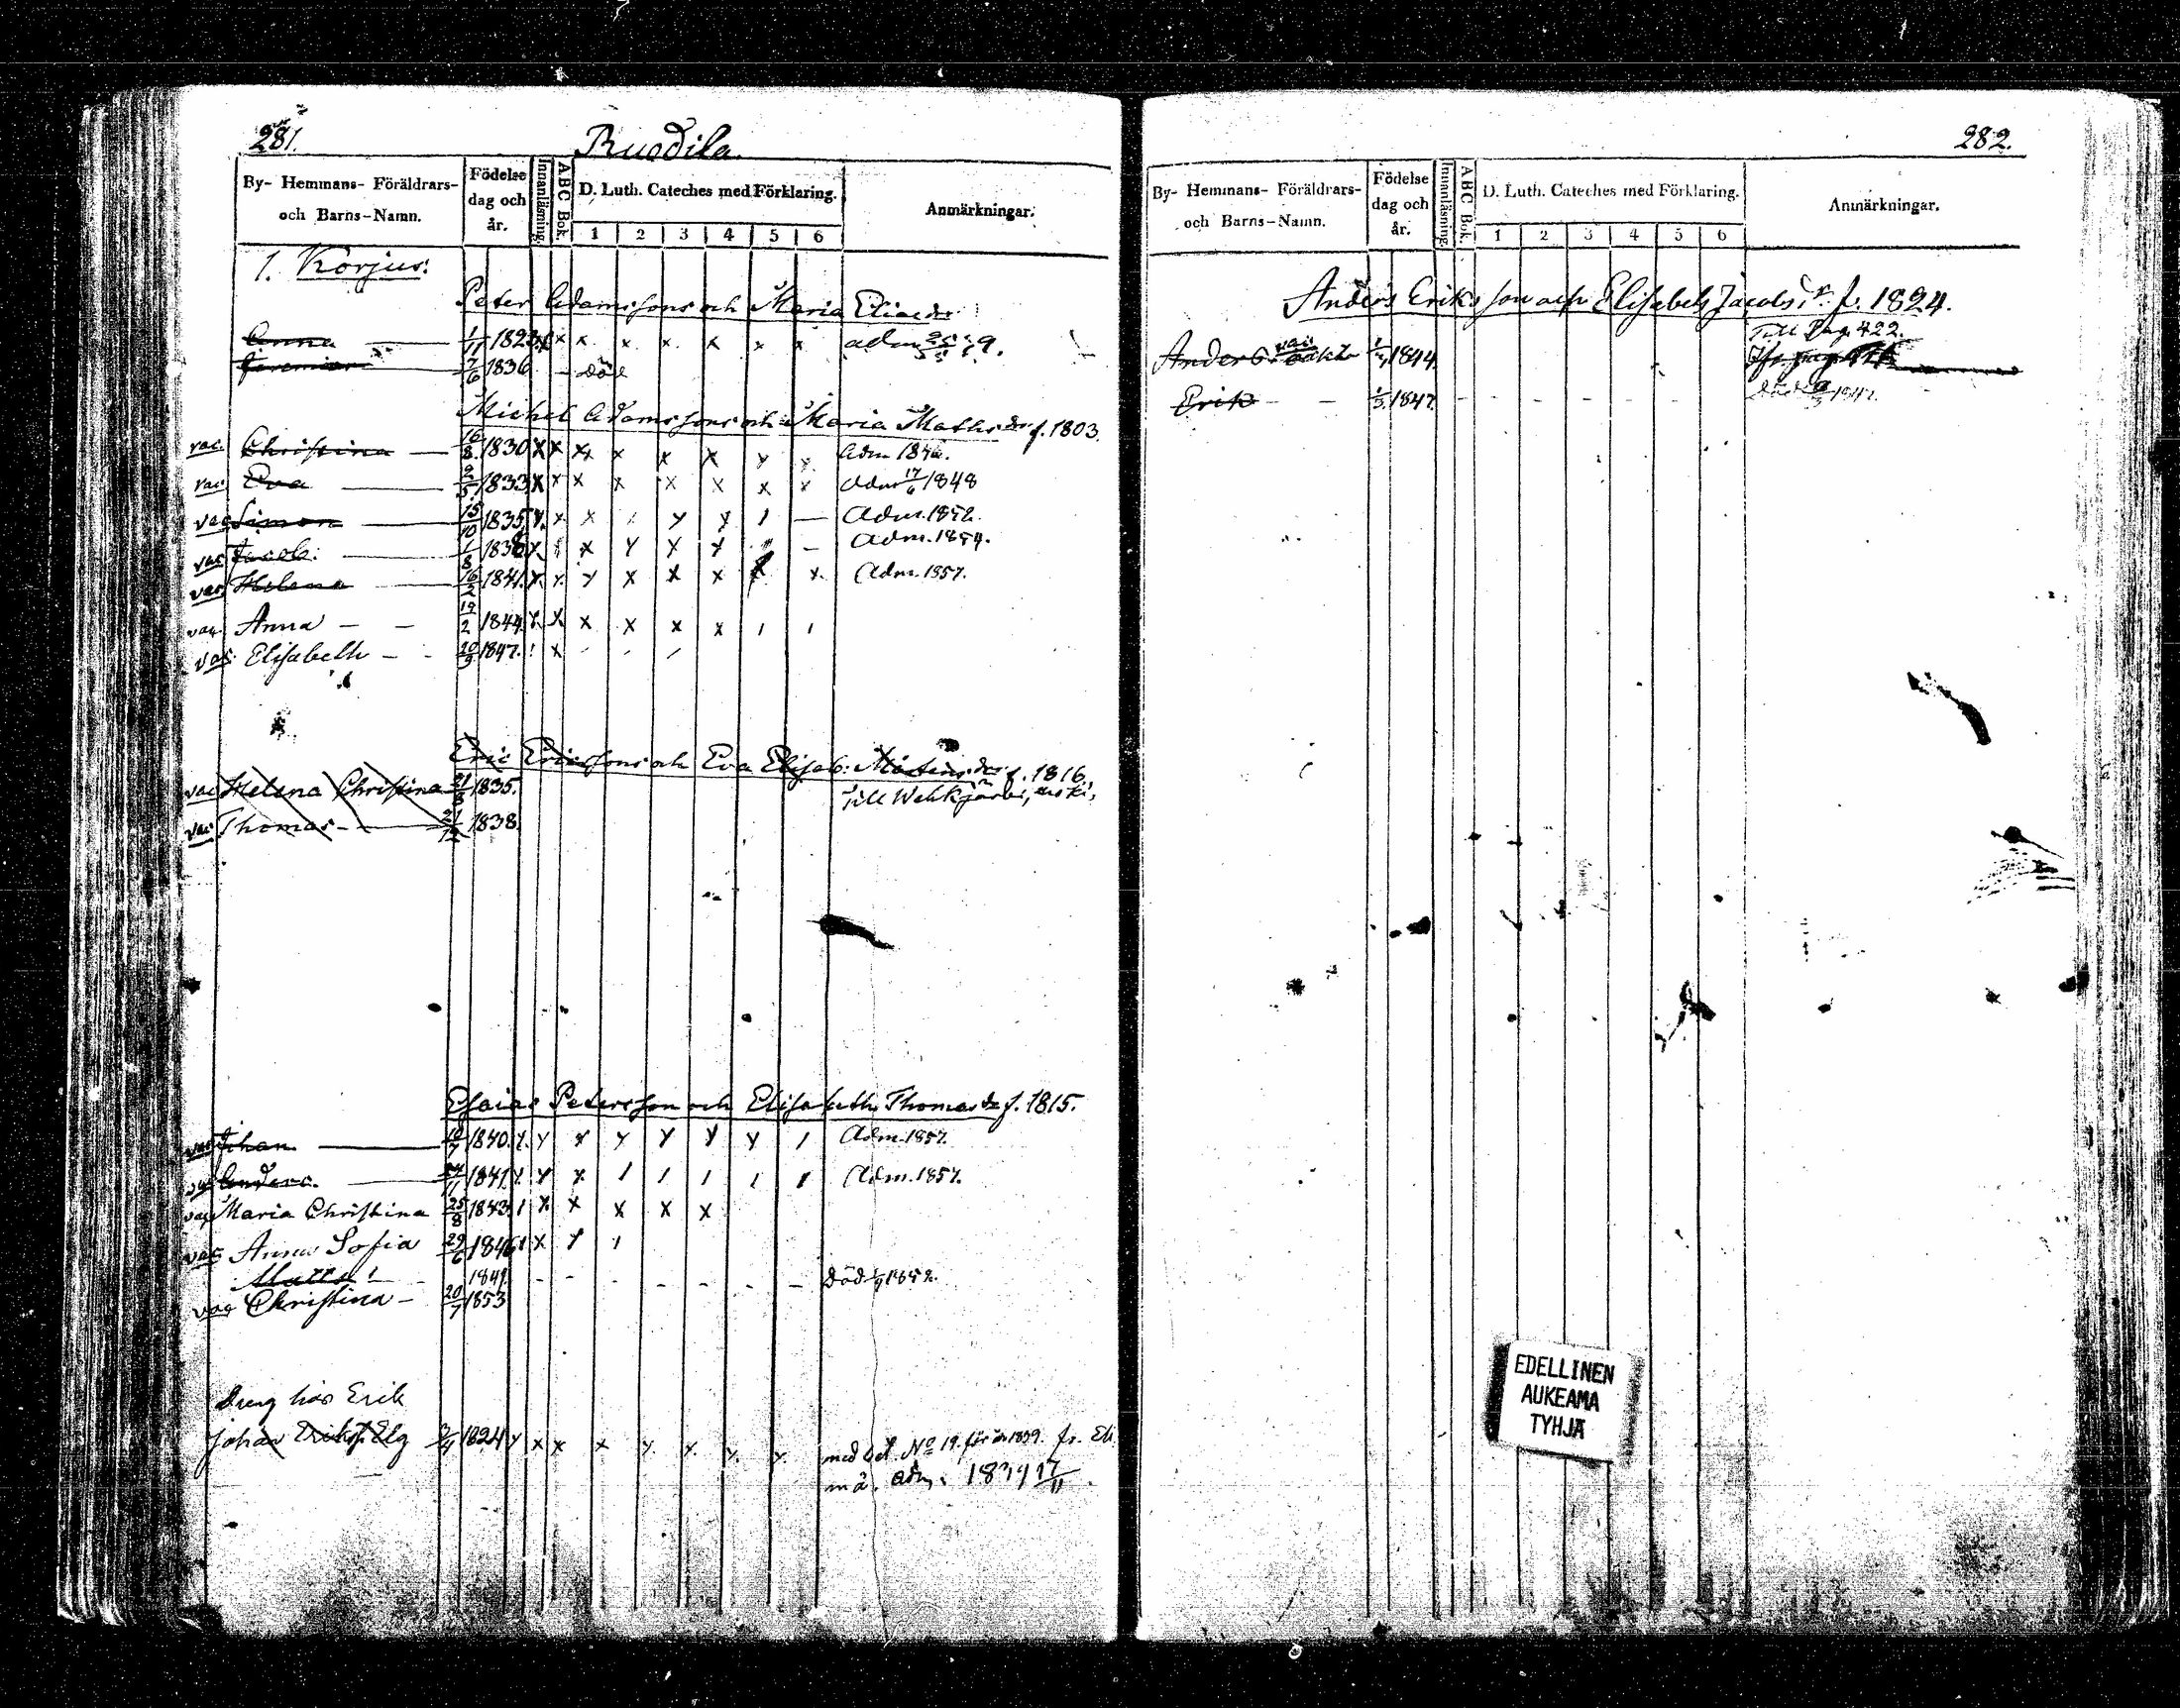 281.
Rusdila.
By- Hemmans- Föräldrars- och Barns-Namn.
Födelse dag och år.
Innanläsning.
A B C Bok.
D. Luth. Cateches med Förklaring.
1 2 3 4 5 6
Anmärkningar.
1. Korjus.
Peter Adamssons och Maria Eliaedr
Anna 1/11 1823. x x x x x x x x adm
Jeremias 7/6 1836 - död
Michel Adamssons och Maria Mathsdr f. 1803.
vac. Christina 16/8 1830 x x x x x x x x Adm
vac. Eva 2/5 1833 x x x x x x x x Adm 17/6 1848
vac Simon 15/10 1835 Adm. 1852.
vac Jacob 1/8 1838 Adm. 1854.
vac Helena 16/2 1841. Adm. 1857.
vac. Anna - - 19/2 1844.
vac. Elisabeth - - 20/9 1847.
Eric Ericssons och Eva Elisab: Mårtensdr f. 1816.
vac Helena Christina 21/8 1835. Till Wehkjärvi,
vac Thomas 21/12 1838.
Esaias Petersson och Elisabeth Thomasdr f. 1815.
vac Johan 18/7 1840. Adm. 1857.
vac Anders 24/11 1841. Adm. 1857.
vac Maria Christina 25/8 1843
vac Anna Sofia 29/6 1846
Matts 1849. - - - - - - - Död 1/9 1852.
vac Christina - 20/7 1853
Dreng hos Erik
Johan Erikss. Elg 2/4 1824 med bet. No 19. för år 1839. fr.
adm. 1839 17/11.
282.
By- Hemmans- Föräldrars- och Barns-Namn.
Födelse dag och år.
Innanläsning.
A B C Bok.
D. Luth. Cateches med Förklaring.
1 2 3 4 5 6
Anmärkningar.
Anders Eriksson och Elisabeth Jacobsdr f. 1824.
Till Pag. 422.
Anders vac 1844.
Erik - - 1847. - - - - - - Död 1847.
EDELLINEN
AUKEAMA
TYHJÄ